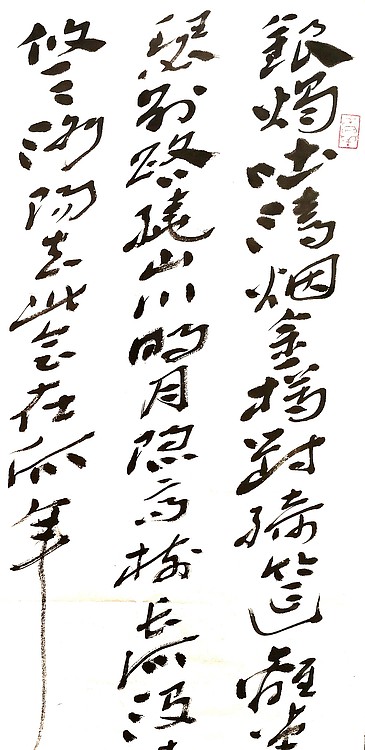 銀燭吐清烟金樽對綺筵離堂
瑟別路繞山川明月隱高樹長河没
悠々洛陽去此会在何年